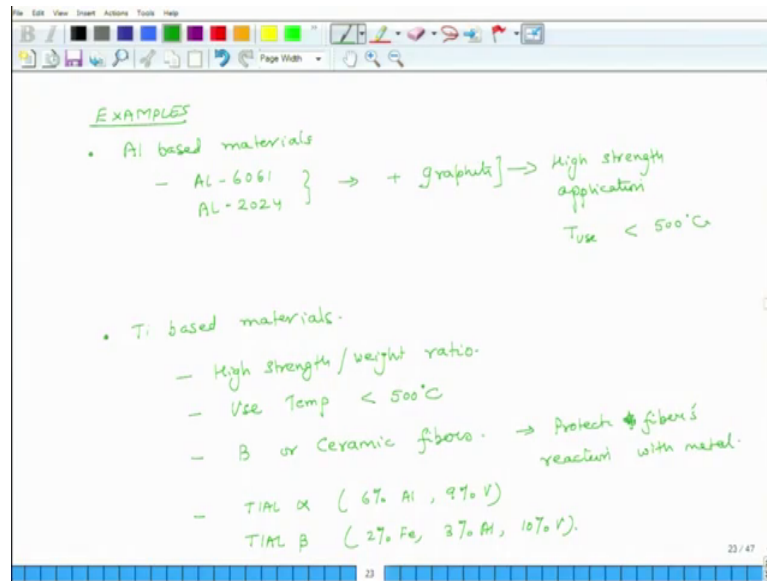 File Edit View Insert Actions Tools Help
B I
Page Width
EXAMPLES
• Al based materials
– AL-6061
AL-2024 } → + graphite] → High strength
application
Tuse < 500°C
• Ti based materials.
– High strength/weight ratio.
– Use Temp < 500°C
– B or Ceramic fibers. → Protect fiber's
reaction with metal.
– TIAL α (6% Al, 9% V)
TIAL β (2% Fe, 3% Al, 10% V).
23 / 47
23